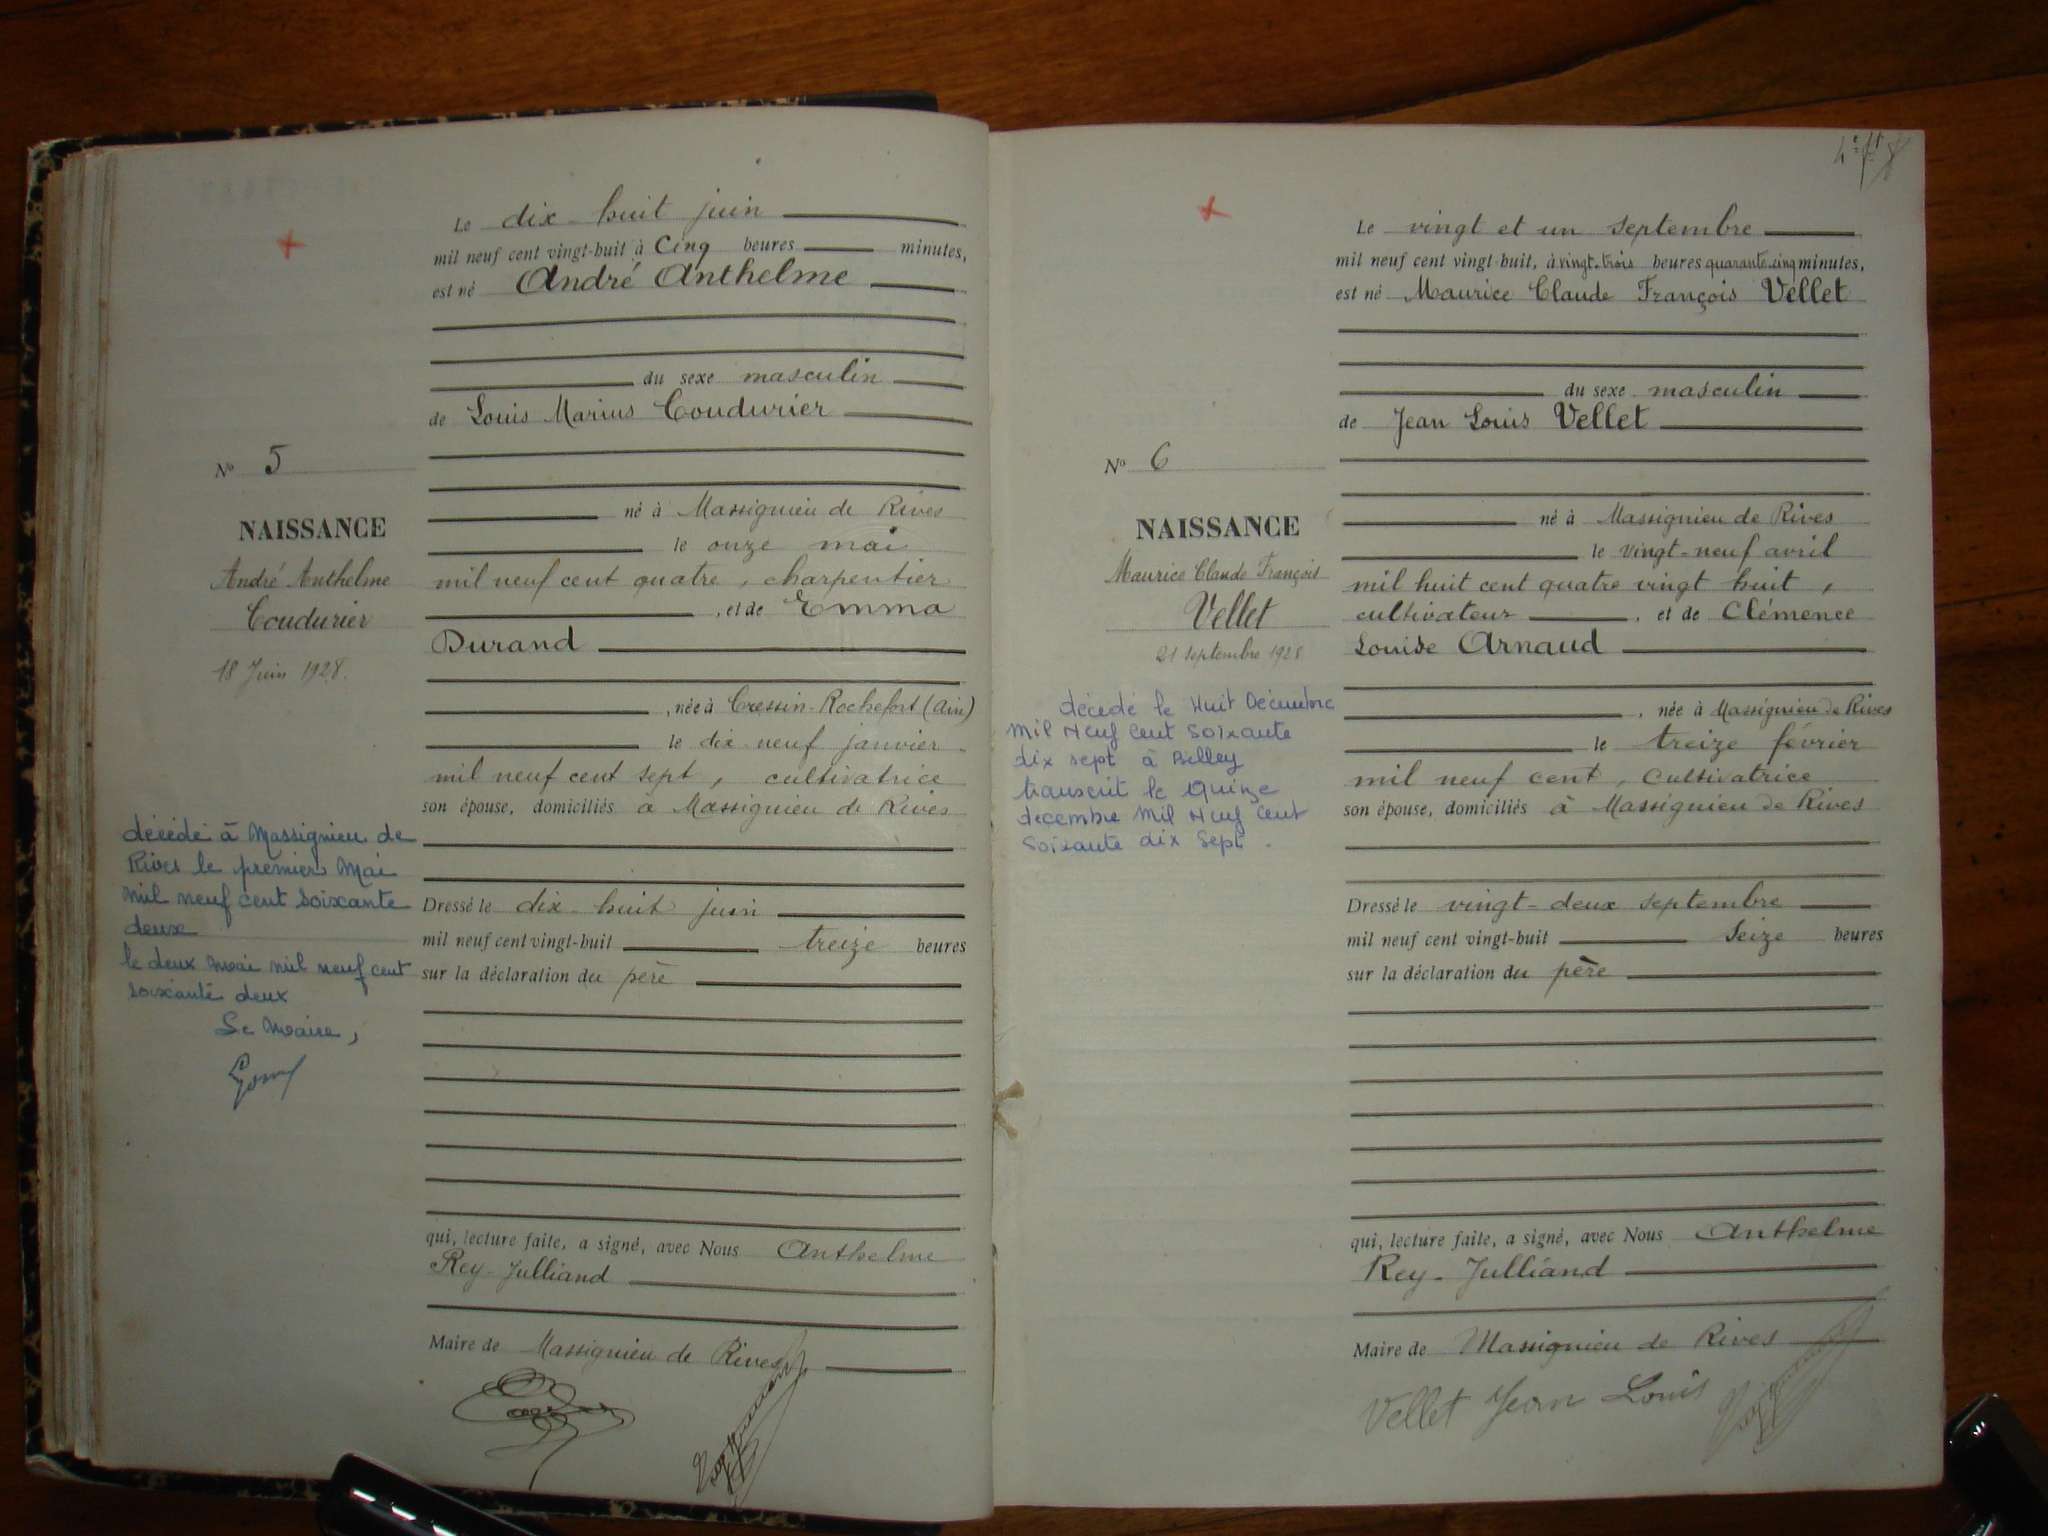 Le dix-huit juin
mil neuf cent vingt-huit à Cinq heures minutes,
est né André Anthelme
du sexe masculin
de Louis Marius Coudurier
N° 5
né à Massignieu de Rives
NAISSANCE
le onze mai
André Anthelme
Coudurier
18 Juin 1928.
mil neuf cent quatre, charpentier
, et de Emma
Durand
, née à Cressin-Rochefort (Ain)
le dix neuf janvier
mil neuf cent sept, cultivatrice
son épouse, domiciliés à Massignieu de Rives
décédé à Massignieu de
Rives le premier Mai
mil neuf cent soixante
deux
le deux mai mil neuf cent
soixante deux
Le Maire,
Dressé le dix-huit juin
mil neuf cent vingt-huit treize heures
sur la déclaration du père
qui, lecture faite, a signé, avec Nous Anthelme
Rey-Julliand
Maire de Massignieu de Rives
Le vingt et un septembre
mil neuf cent vingt huit, à vingt-trois heures quarante-cinq minutes,
est né Maurice Claude François Vellet
du sexe masculin
de Jean Louis Vellet
N° 6
né à Massignieu de Rives
NAISSANCE
le vingt-neuf avril
Maurice Claude François
Vellet
21 septembre 1928
mil huit cent quatre vingt huit,
cultivateur , et de Clémence
Louise Arnaud
décédé le Huit Décembre
Mil Neuf Cent Soixante
dix sept à Belley
transcrit le Quinze
décembre Mil Neuf Cent
Soixante dix Sept.
, née à Massignieu de Rives
le treize février
mil neuf cent, Cultivatrice
son épouse, domiciliés à Massignieu de Rives
Dressé le vingt-deux septembre
mil neuf cent vingt-huit Seize heures
sur la déclaration du père
qui, lecture faite, a signé, avec Nous Anthelme
Rey-Julliand
Maire de Massignieu de Rives
Vellet Jean Louis